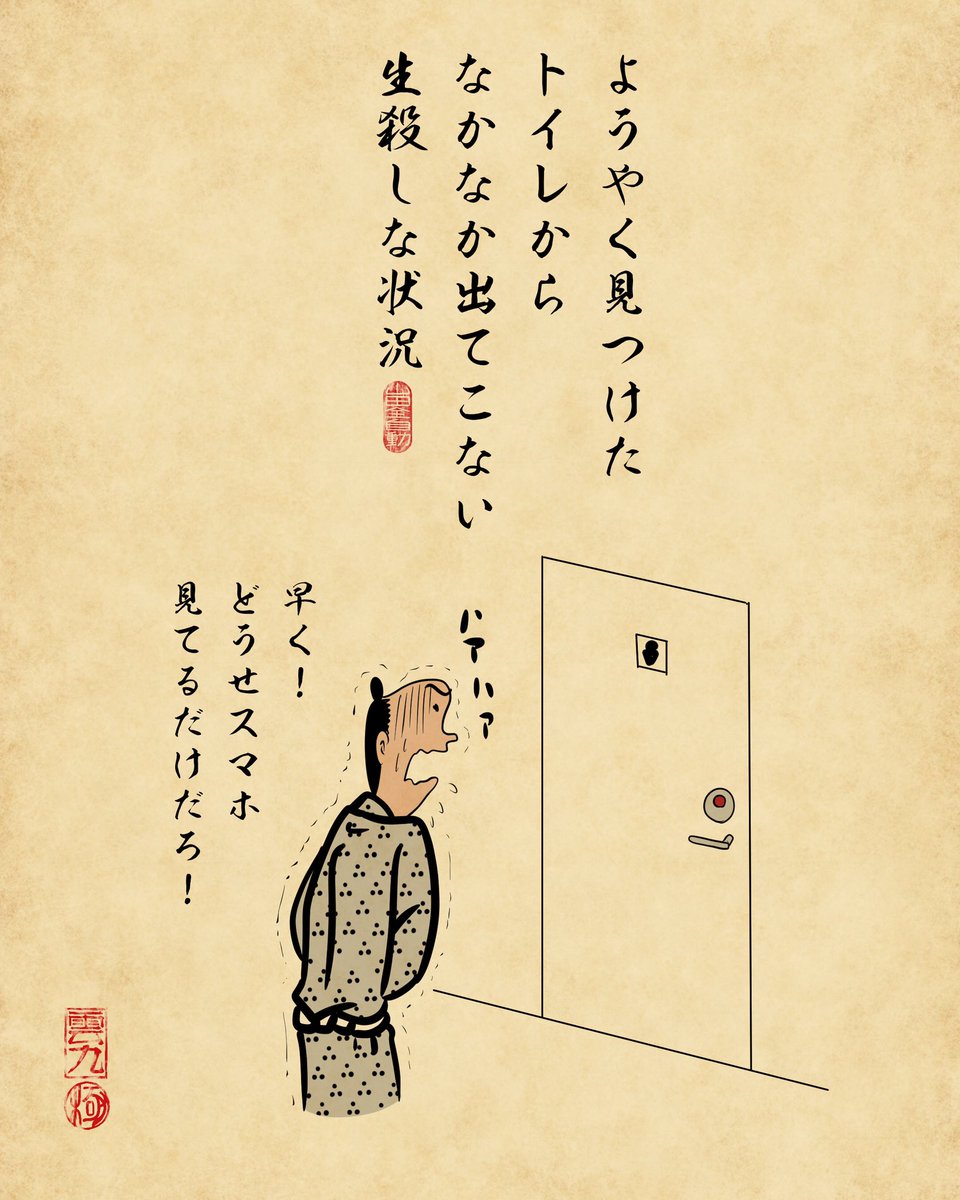 ようやく見つけた
トイレから
なかなか出てこない
生殺しな状況
ハアハア
早く！
どうせスマホ
見てるだけだろ！